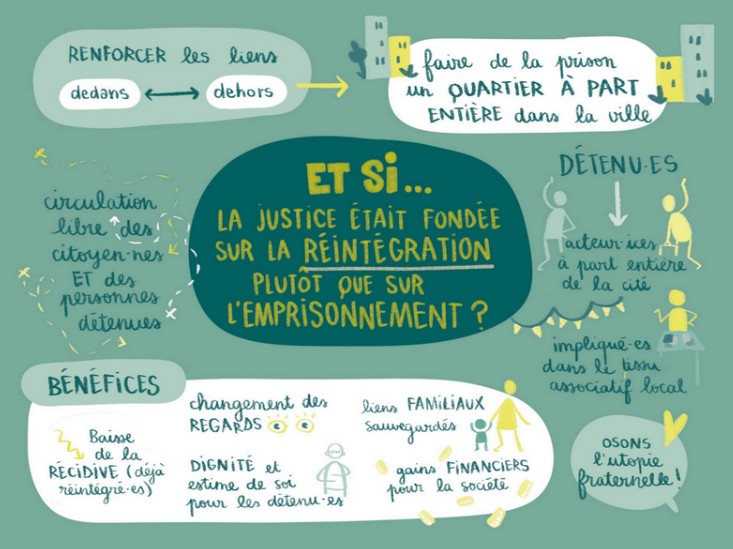 RENFORCER les liens
dedans ↔ dehors
faire de la prison
un QUARTIER À PART
ENTIÈRE dans la ville
ET Si...
LA JUSTICE ÉTAIT FONDÉE
SUR LA RÉINTÉGRATION
PLUTÔT QUE SUR
L'EMPRISONNEMENT ?
circulation
libre des
citoyen·nes
ET des
personnes
détenues
DÉTENU·ES
acteur·ices
à part entière
de la cité
impliqué·es
dans le tissu
associatif local
BÉNÉFiCES
Baisse
de la
RÉCIDIVE (déjà
réintégré·es)
changement des
REGARDS
DiGNiTÉ et
estime de soi
pour les détenu·es
liens FAMiLiAUX
sauvegardés
gains FiNANCiERS
pour la société
OSONS
l'utopie
fraternelle !